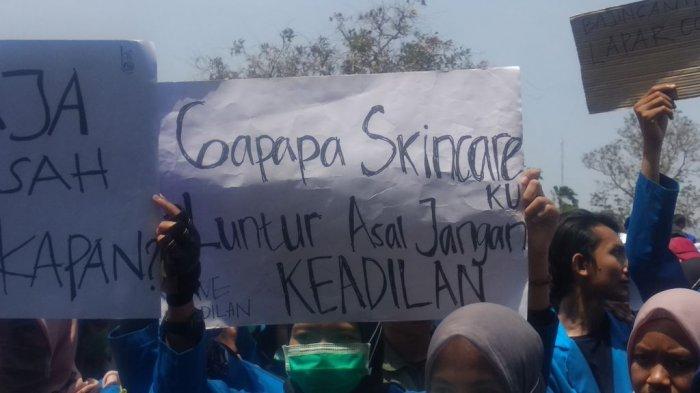 AJA
SAH
KAPAN?
Gapapa Skincare
KU
Luntur Asal Jangan
KEADILAN
LAPAR